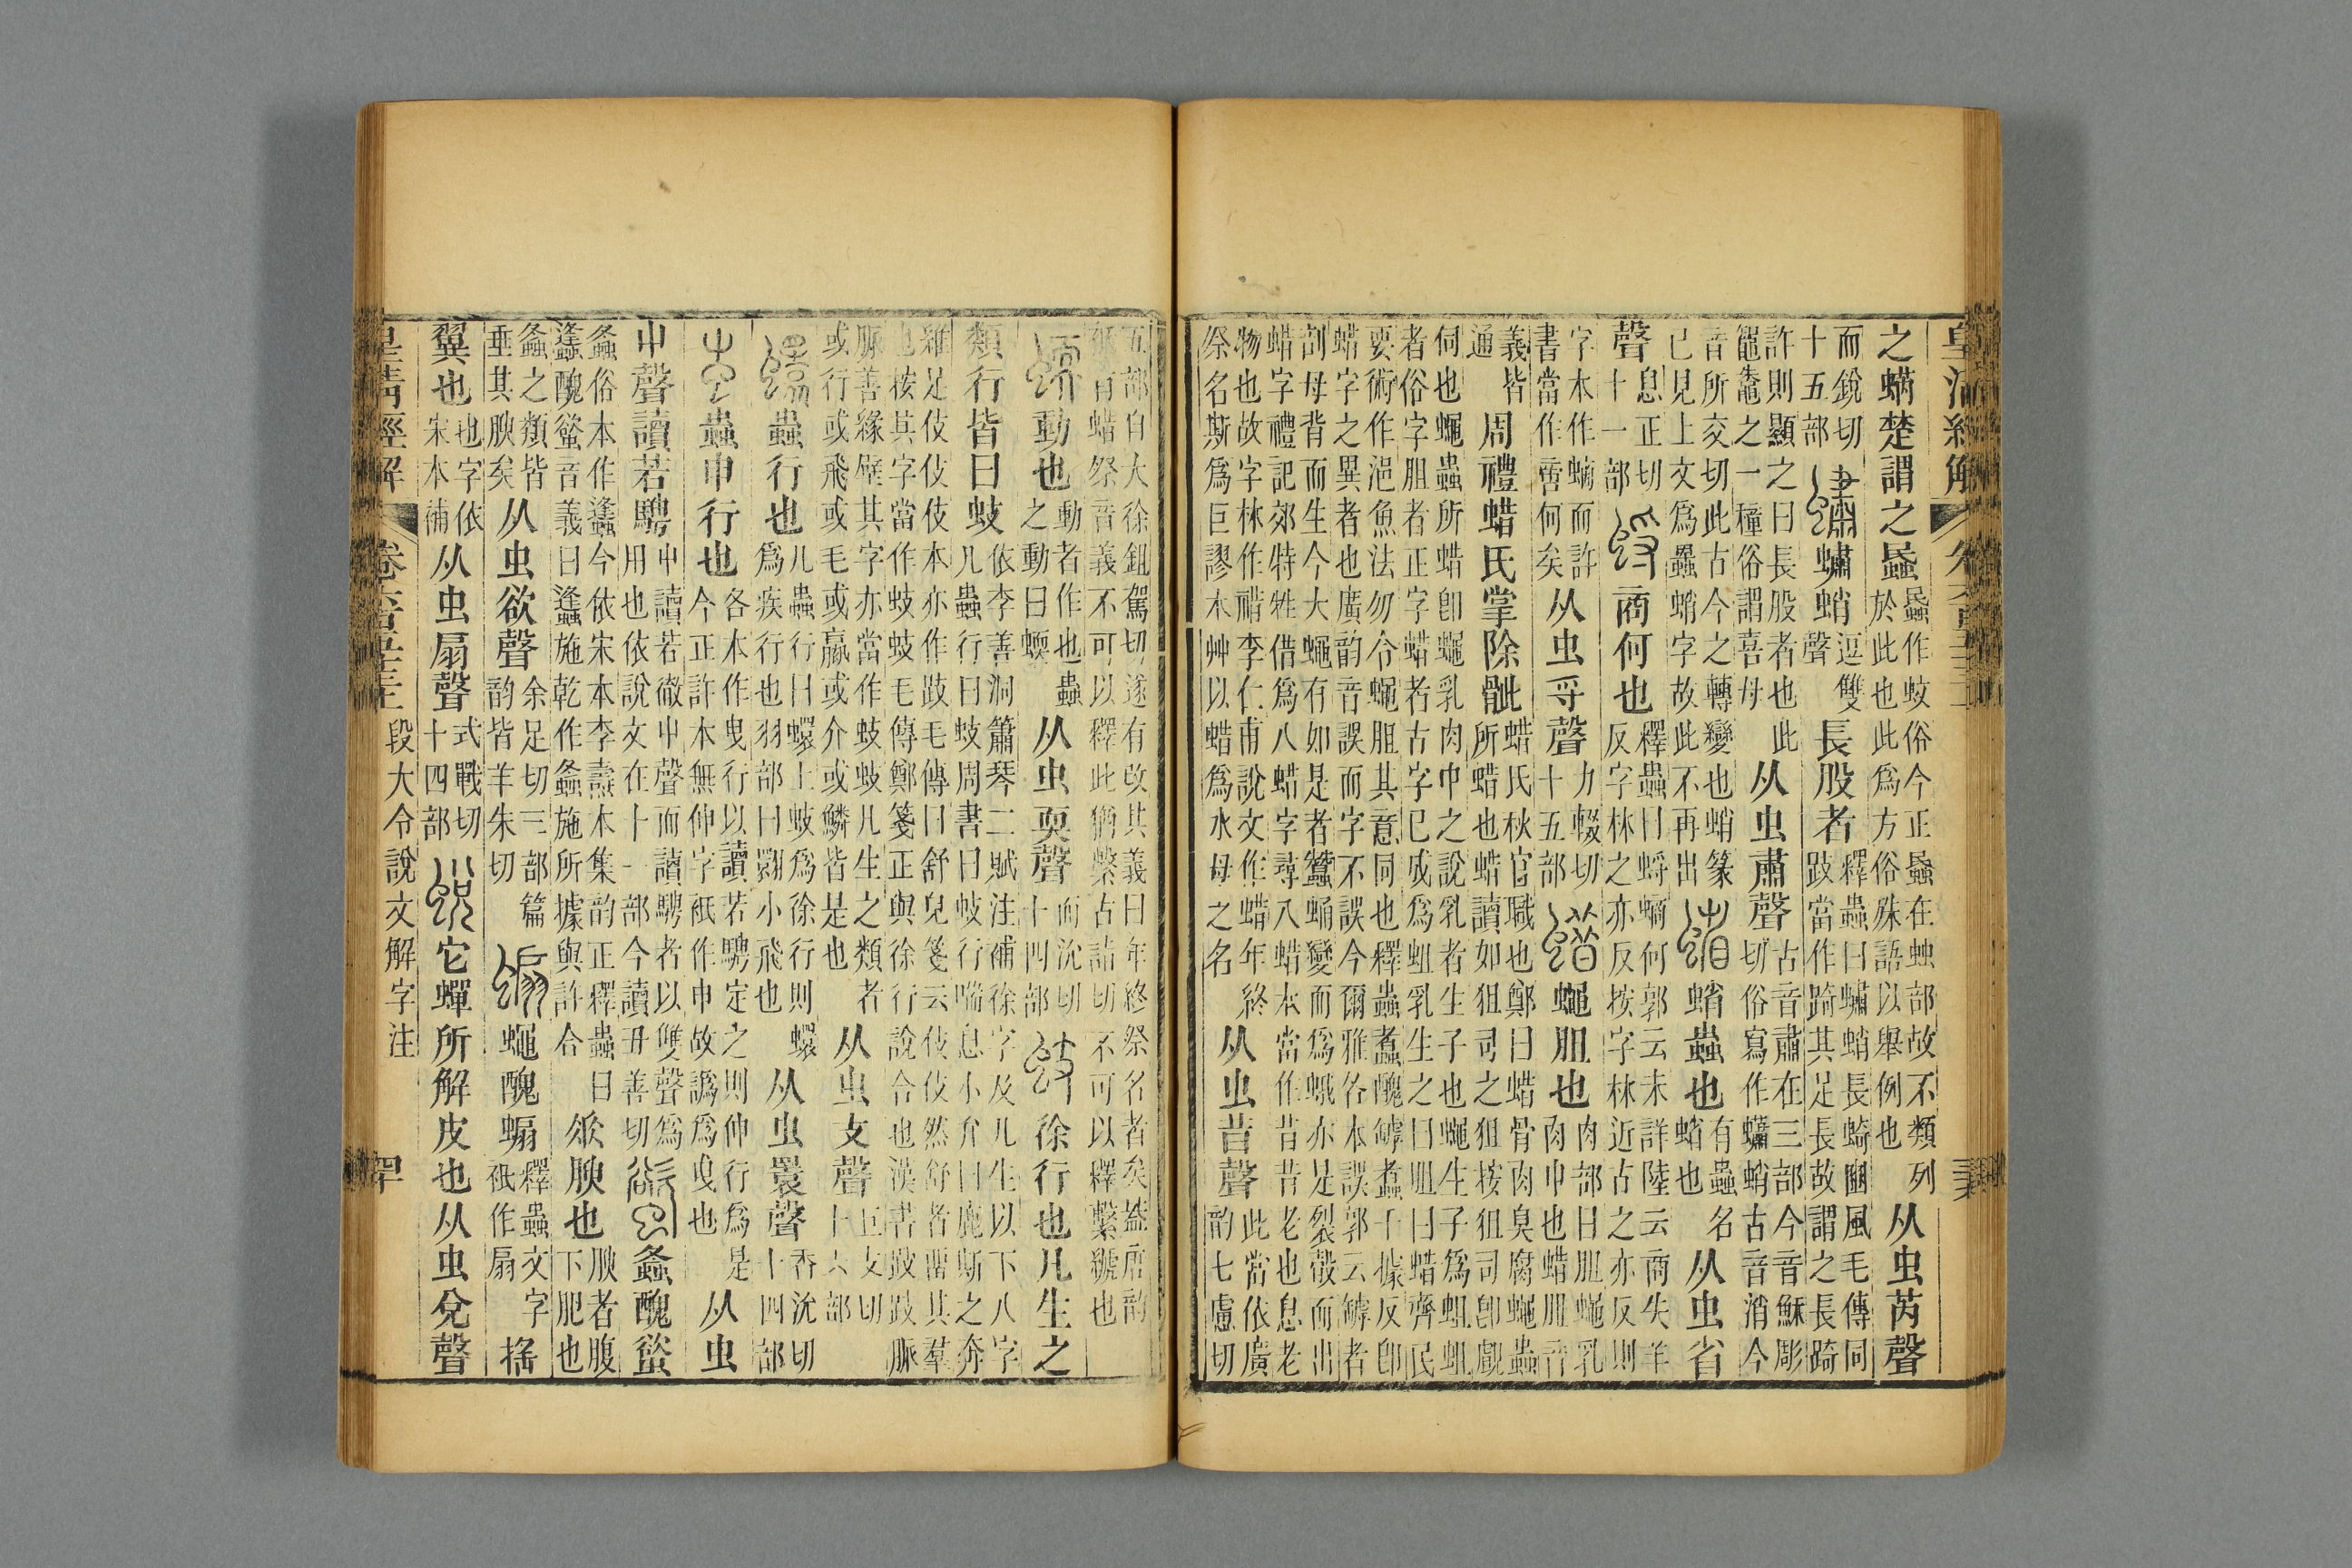 皇清經解
之蜹楚謂之蟁蟁作蚊俗今正蟁在䖵部故不類列於此也此爲方俗殊語以舉例也从虫芮聲
而銳切十五部蠨蛸逗雙聲長股者釋蟲曰蠨蛸長踦豳風毛傳同跂當作踦其足長故謂之長踦
許則顯之曰長股者也此鼅鼄之一穜俗謂喜母从虫肅聲古音肅在三部今音穌彫切俗寫作蠨蛸古音消今
音所交切此古今之轉變也蛸篆已見上文爲蟲蛸字故此不再出蛸蟲也有蟲名蛸也从虫省
聲息正切十一部商何也釋蟲曰蛶螪何郭云未詳陸云商失羊反字林之亦反按字林近古之亦反則
字本作螪而許書當作啻何矣从虫寽聲力輟切十五部蠅胆也肉部曰胆蠅乳肉中也蜡胆音
義皆通周禮蜡氏掌除骴蜡氏秋官職也鄭曰蜡骨肉臭腐蠅蟲所蜡也蜡讀如狙司之狙按狙司卽覻
伺也蠅蟲所蜡卽蠅乳肉中之說乳者生子也蠅生子爲蛆蛆者俗字胆者正字蜡者古字已成爲蛆乳生之曰胆曰蜡齊民
要術作浥魚法勿令蠅胆其意同也釋蟲蠚醜罅蠚千據反卽蜡字之異者也廣韵音誤而字不誤今爾雅各本誤郭云罅者
剖母背而生今大蠅有如是者蠶蛹變而爲蛾亦是裂㱿而出蜡字禮記郊特牲借爲八蜡字尋八蜡本當作昔昔老也息老
物也故字林作䄍李仁甫說文作蜡年終祭名斯爲巨謬本艸以蜡爲水母之名从虫昔聲此當依廣韵七慮切
五部自大徐鉏駕切遂有改其義曰年終祭名者矣葢唐韵祇有蜡祭音義不可以釋此猶古詰切不可以釋繫也
動也動者作也蟲之動曰蝡从虫耎聲而沇切十四部徐行也凡生之
類行皆曰蚑依李善洞簫琴二賦注補徐字及凡生以下八字凡蟲行曰蚑周書曰蚑行喘息小弁曰鹿斯之奔
維足伎伎伎本亦作跂毛傳曰舒皃箋云伎伎然舒者畱其羣也按其字當作蚑蚑毛傳鄭箋正與徐行說合也漢書跂跂脈
脈善緣壁其字亦當作蚑蚑凡生之類者或行或飛或毛或蠃或介或鱗皆是也从虫支聲巨支切十六部
蟲行也凡蟲行曰蠉上蚑爲徐行則蠉爲疾行也羽部曰翾小飛也从虫瞏聲香沇切十四部
蟲申行也各本作曳行以讀若騁定之則伸行爲是今正許本無伸字祇作申故譌爲曳也从虫
屮聲讀若騁屮讀若徹屮聲而讀騁者以雙聲爲用也依說文在十一部今讀丑善切螽醜螸
螽俗本作蠭今依宋本李燾本集韵正釋蟲曰蠭醜螸音義曰蠭施乾作螽施所據與許合腴也腴者腹下肥也
螽之類皆垂其腴矣从虫欲聲余足切三部篇韵皆羊朱切蠅醜蝙釋蟲文字祇作扇搖
翼也也字依宋本補从虫扇聲式戰切十四部它蟬所解皮也从虫兌聲
皇清經解 卷六百五十三 段大令說文解字注